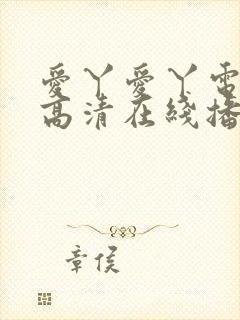 愛丫愛丫電
高清在綫播
章侯